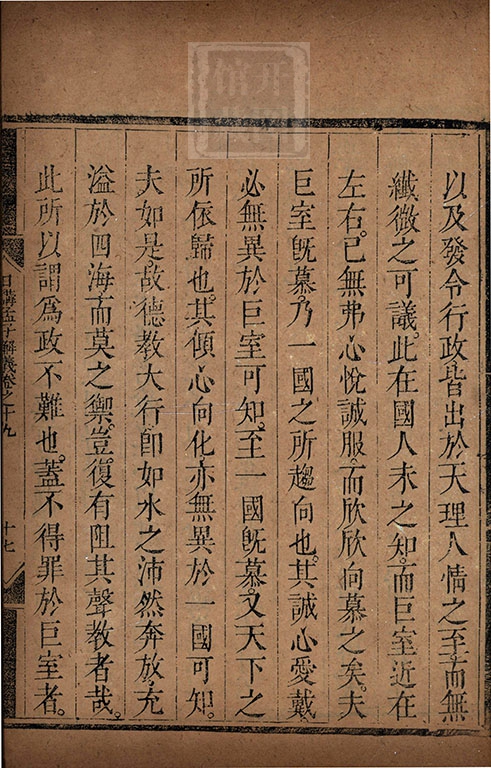 以及發令行政皆出於天理人情之至而無
纖微之可議此在國人未之知而巨室近在
左右已無弗心悅誠服而欣欣向慕之矣夫
巨室旣慕乃一國之所趨向也其誠心愛戴
必無異於巨室可知至一國旣慕又天下之
所依歸也其傾心向化亦無異於一國可知
夫如是故德教大行卽如水之沛然奔放充
溢於四海而莫之禦豈復有阻其聲教者哉
此所以謂爲政不難也蓋不得罪於巨室者
日講孟子解義卷之十九
十七